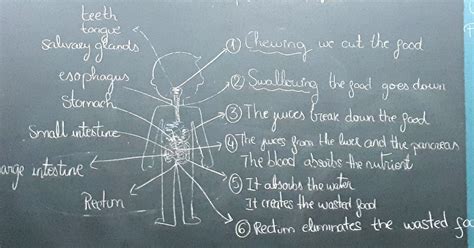 teeth
tongue
salivary glands
esophagus
Stomach
Small intestine
arge intestine
Rectum
① Chewing we cut the food
② Swallowing the food goes down
③ The juices break down the food
④ The juices from the liver and the pancreas
The blood absorbs the nutrient
⑤ It absorbs the water
It creates the wasted food
⑥ Rectum eliminates the wasted foo